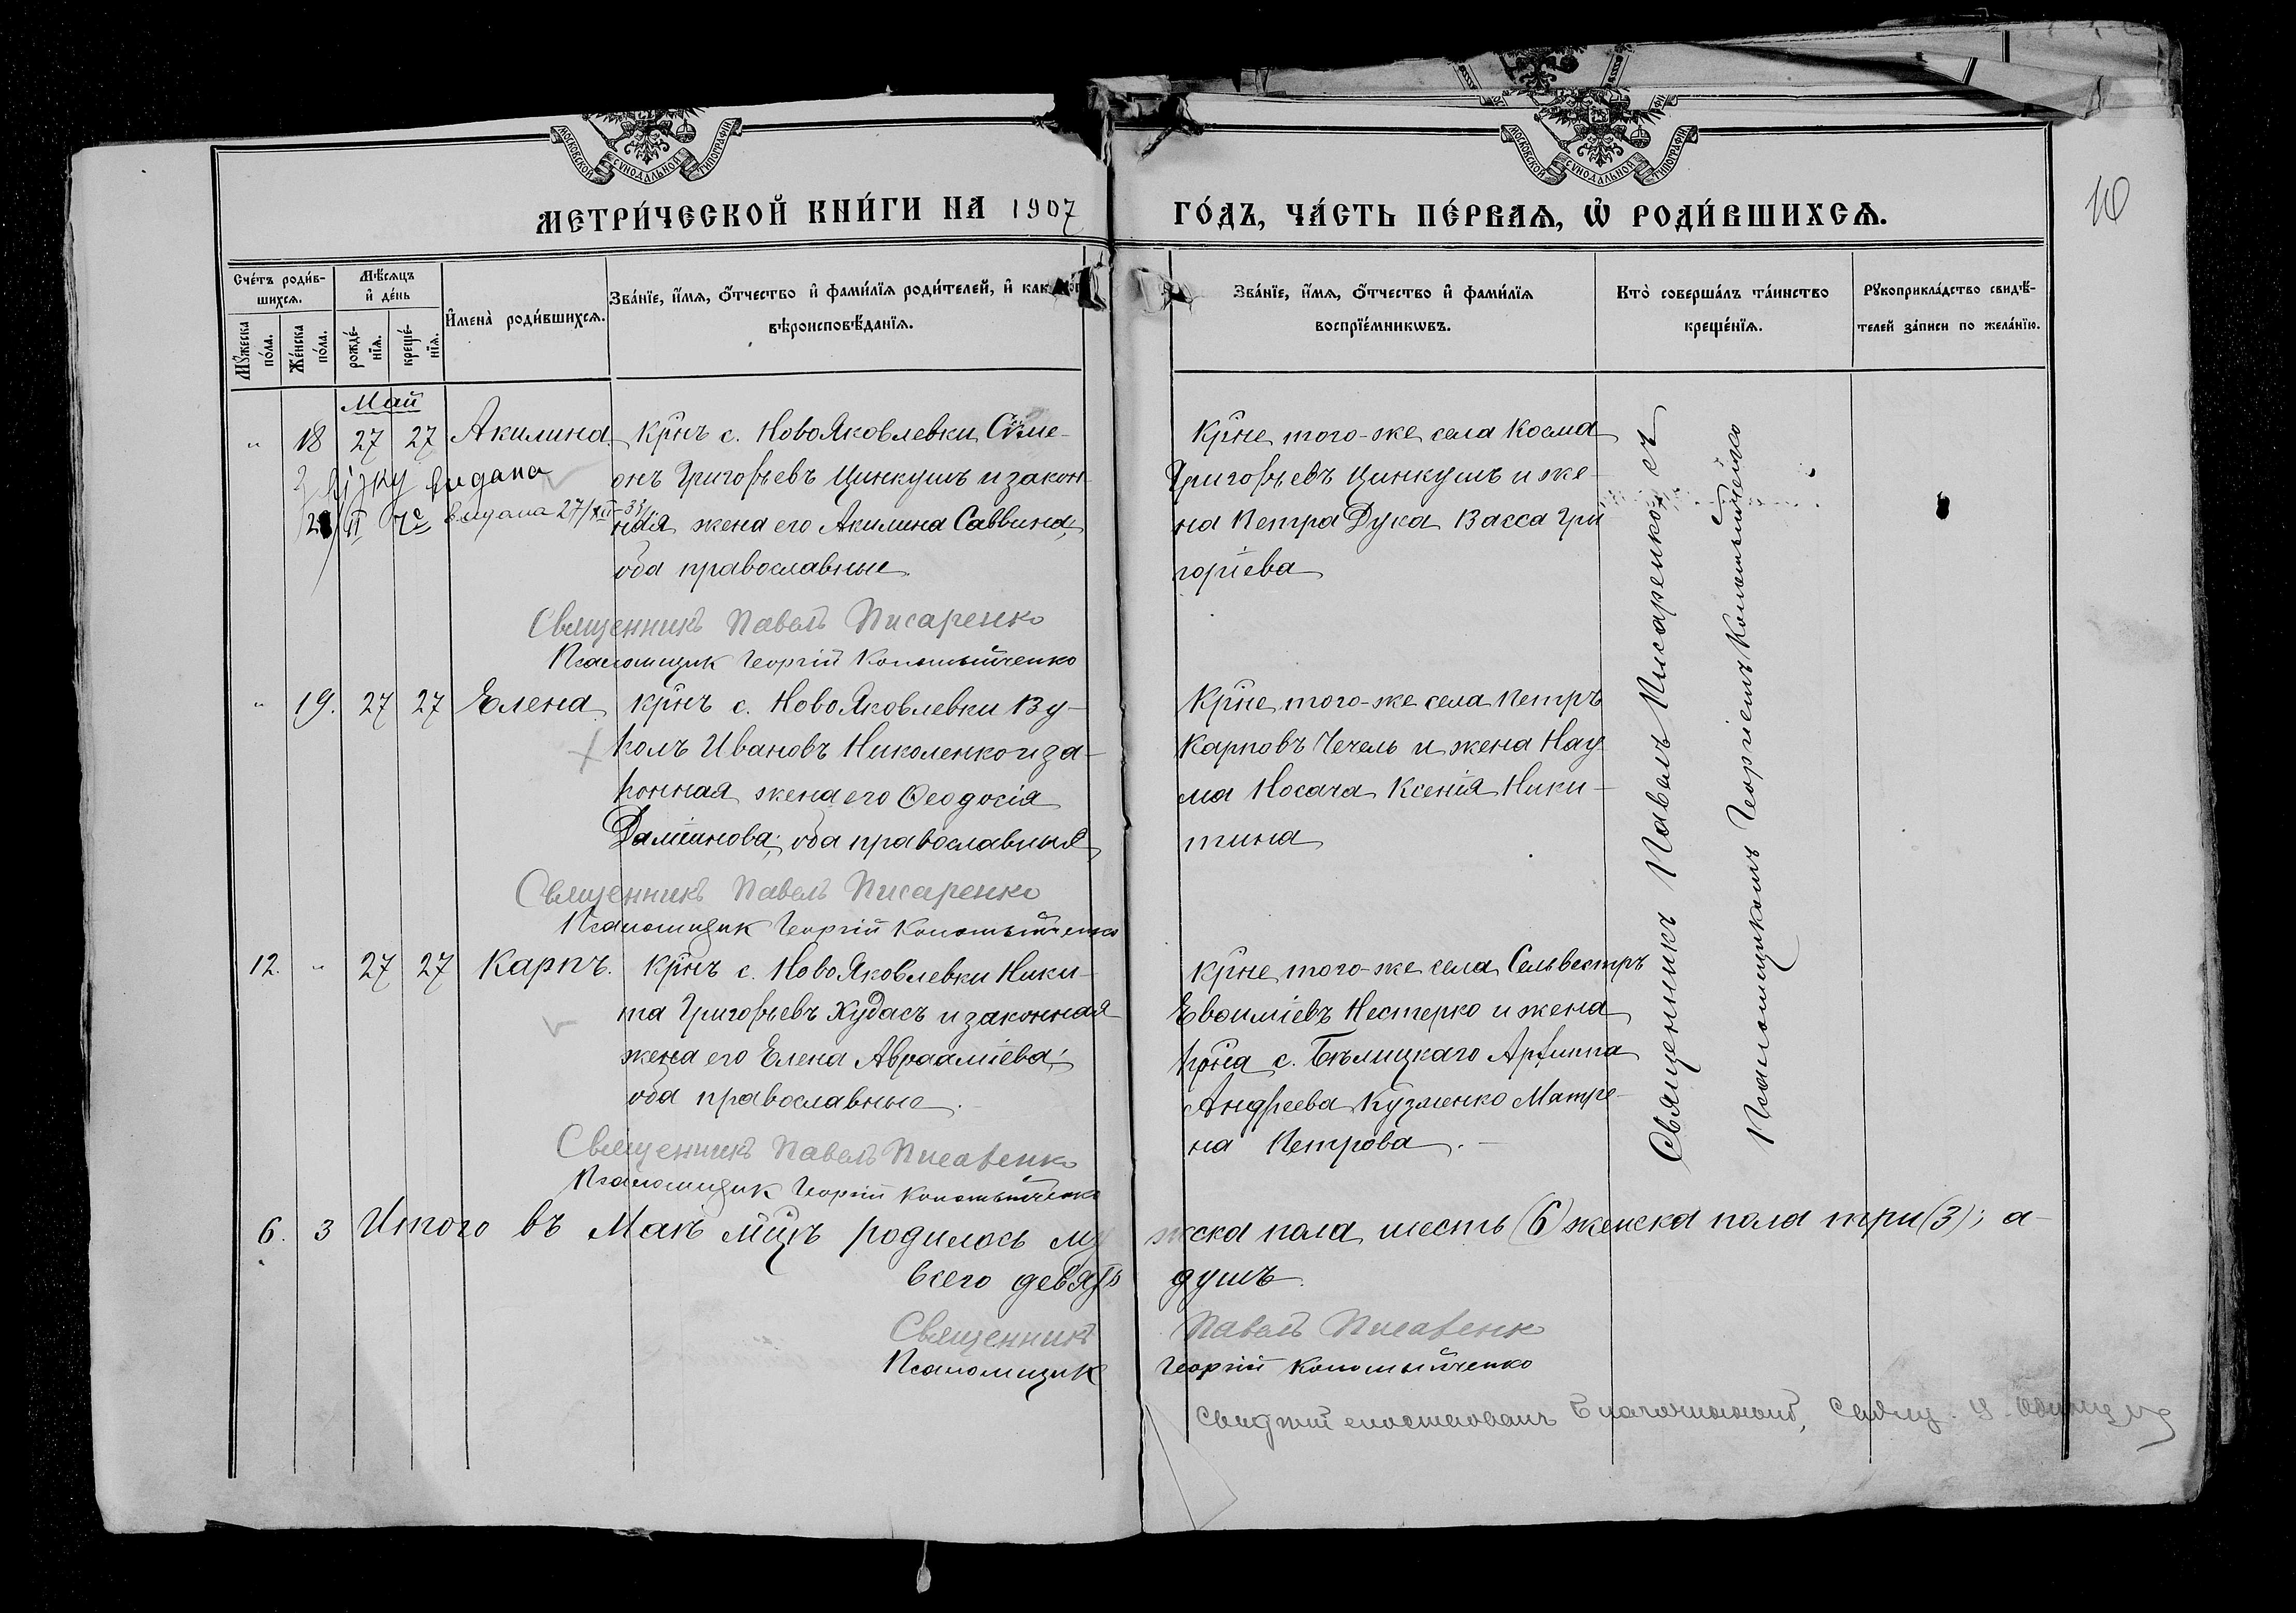 МОСКОВСКОЙ СУНОДАЛЬНОЙ ТИПОГРАФІИ
МОСКОВСКОЙ СУНОДАЛЬНОЙ ТИПОГРАФІИ
МЕТРИ́ЧЕСКОЙ КНИ́ГИ НА 1907
ГО́ДЪ, ЧА́СТЬ ПЕ́РВАѦ, Ѡ҆ РОДИ́ВШИХСѦ.
10
Сче́тъ роди́в-
шихсѧ.
Мꙋ́жеска
по́ла.
Же́нска
по́ла.
Мѣ́сѧцъ
и҆ де́нь
рожде́-
нїѧ.
креще́-
нїѧ.
И҆мена̀ роди́вшихсѧ.
Зва́нїе, и҆́мѧ, ѻ҆́тчество и҆ фами́лїѧ роди́телей, и҆ как
вѣроисповѣ́данїѧ.
Зва́нїе, и҆́мѧ, ѻ҆́тчество и҆ фами́лїѧ
воспрїе́мникѡвъ.
Кто̀ соверша́лъ та́инство
креще́нїѧ.
Рꙋкоприкла́дство свидѣ́-
телей за́писи по жела́нїю.
Май
" 18 27 27 Акилина
Крнъ с. НовоЯковлевки Сѵме-
онъ Григорьевъ Цинкушъ и закон
ная жена его Акилина Саввина;
оба православные.
видана
видана 27/XII-33
Крне того-же села Косма
Григорьевъ Цинкушъ и же-
на Петра Дука Васса Гри
горіева
Священникъ Павелъ Писаренко
Псаломщик Георгій Коломыйченко
" 19. 27 27 Елена
крнъ с. НовоЯковлевки Ву-
колъ Ивановъ Николенко и за-
конная жена его Ѳеодосія
Даміанова; оба православныя
Крне того-же села Петръ
Карповъ Чечель и жена Нау
ма Носача Ксенія Ники-
тина
Священникъ Павелъ Писаренко
Псаломщик Георгій Коломыйченко
12. " 27 27 Карпъ.
Крнъ с. НовоЯковлевки Ники-
та Григорьевъ Худасъ и законная
жена его Елена Авраамiева;
оба православные.
крне того-же села Сельвестръ
Евѳиміевъ Нестерко и жена
крна с. Бѣлицкаго Архиппа
Андреева Кузменко Матре-
на Петрова.
Священникъ Павелъ Писаренко
Псаломщик Георгій Коломыйченко
Священникъ Павелъ Писаренко съ
Псаломщикомъ Георгіемъ Коломыйченко
6. 3 Итого въ Маѣ мцѣ родилось му жска пола шесть (6) женска пола три (3); а-
всего девять душъ.
Священникъ Павелъ Писаренко
Псаломщик Георгій Коломыйченко